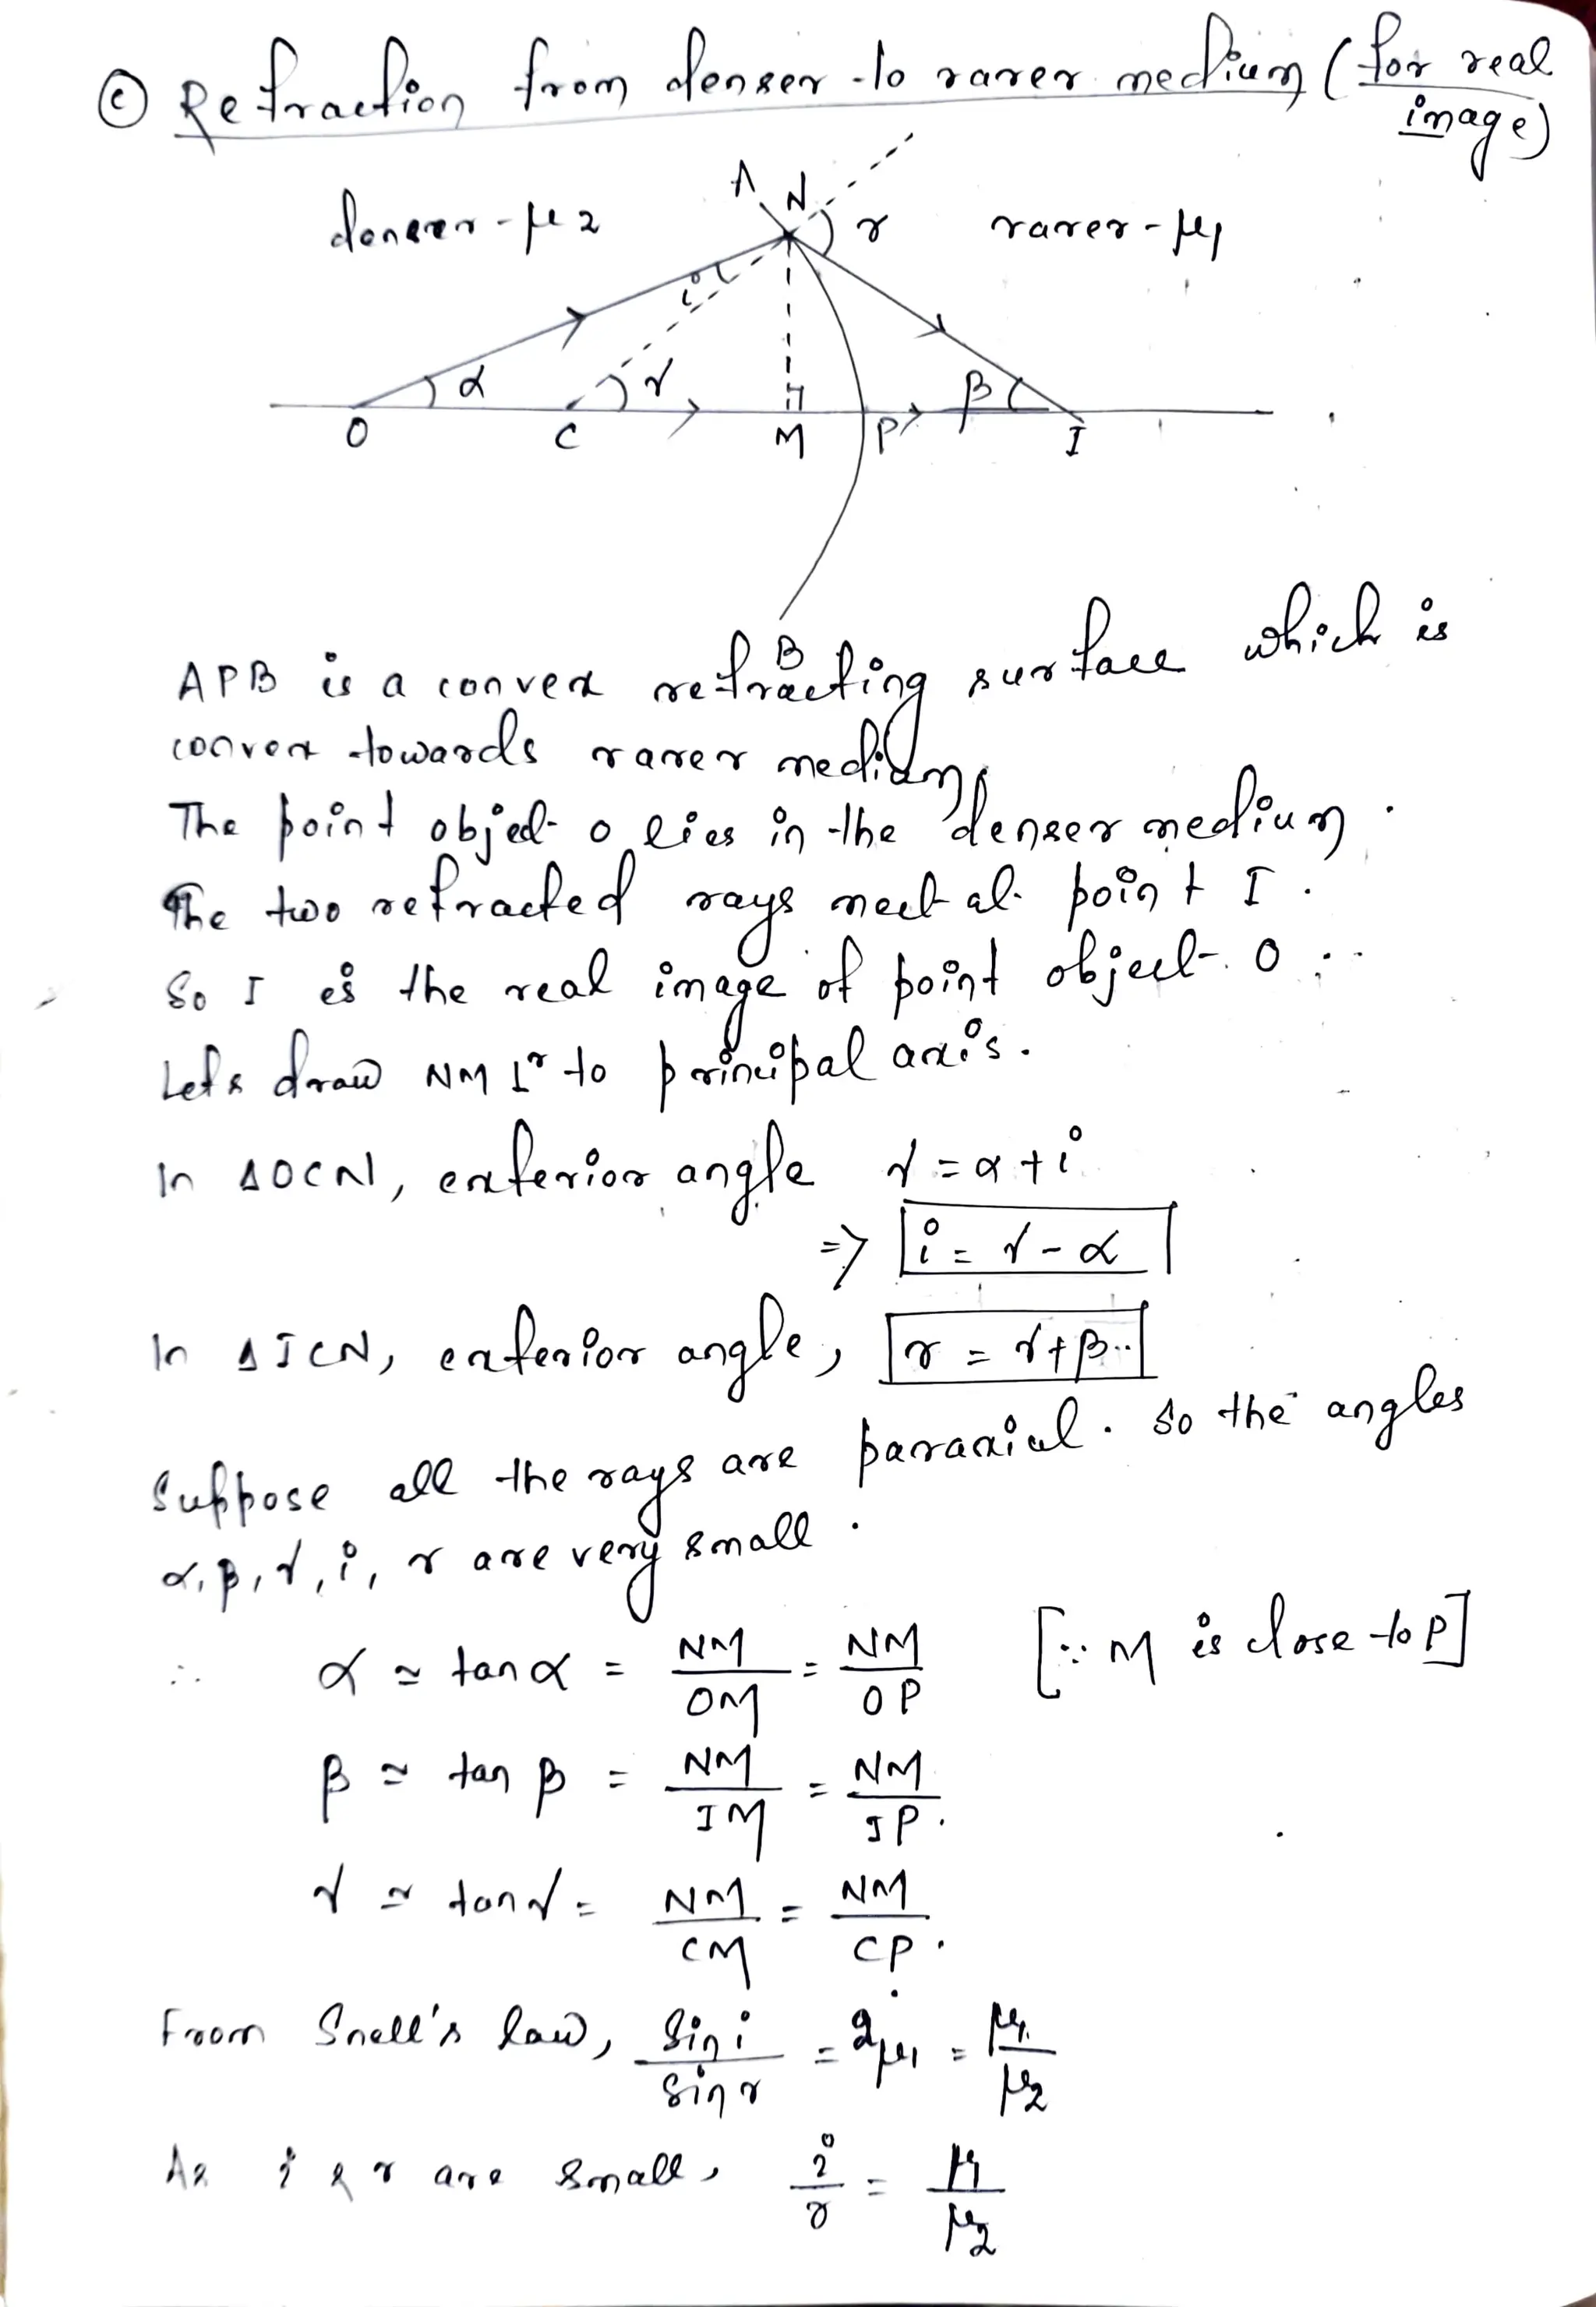 (c) Refraction from denser to rarer medium (for real
image)
A N
denser - μ2
r
rarer - μ1
i
α
γ
β
O
C
M
P
I
B
APB is a convex refracting surface which is
convex towards rarer medium.
The point object O lies in the denser medium.
The two refracted rays meet at point I.
So I is the real image of point object O.
Lets draw NM ⊥r to principal axis.
In ΔOCN, exterior angle γ = α + i
⇒ i = γ - α
In ΔICN, exterior angle, r = γ + β
Suppose all the rays are paraxial. So the angles
α, β, γ, i, r are very small.
∴ α ≃ tan α = NM/OM = NM/OP [∵ M is close to P]
β ≃ tan β = NM/IM = NM/IP.
γ ≃ tan γ = NM/CM = NM/CP.
From Snell's law, sin i/sin r = ²μ₁ = μ1/μ2
As i & r are small, i/r = μ1/μ2